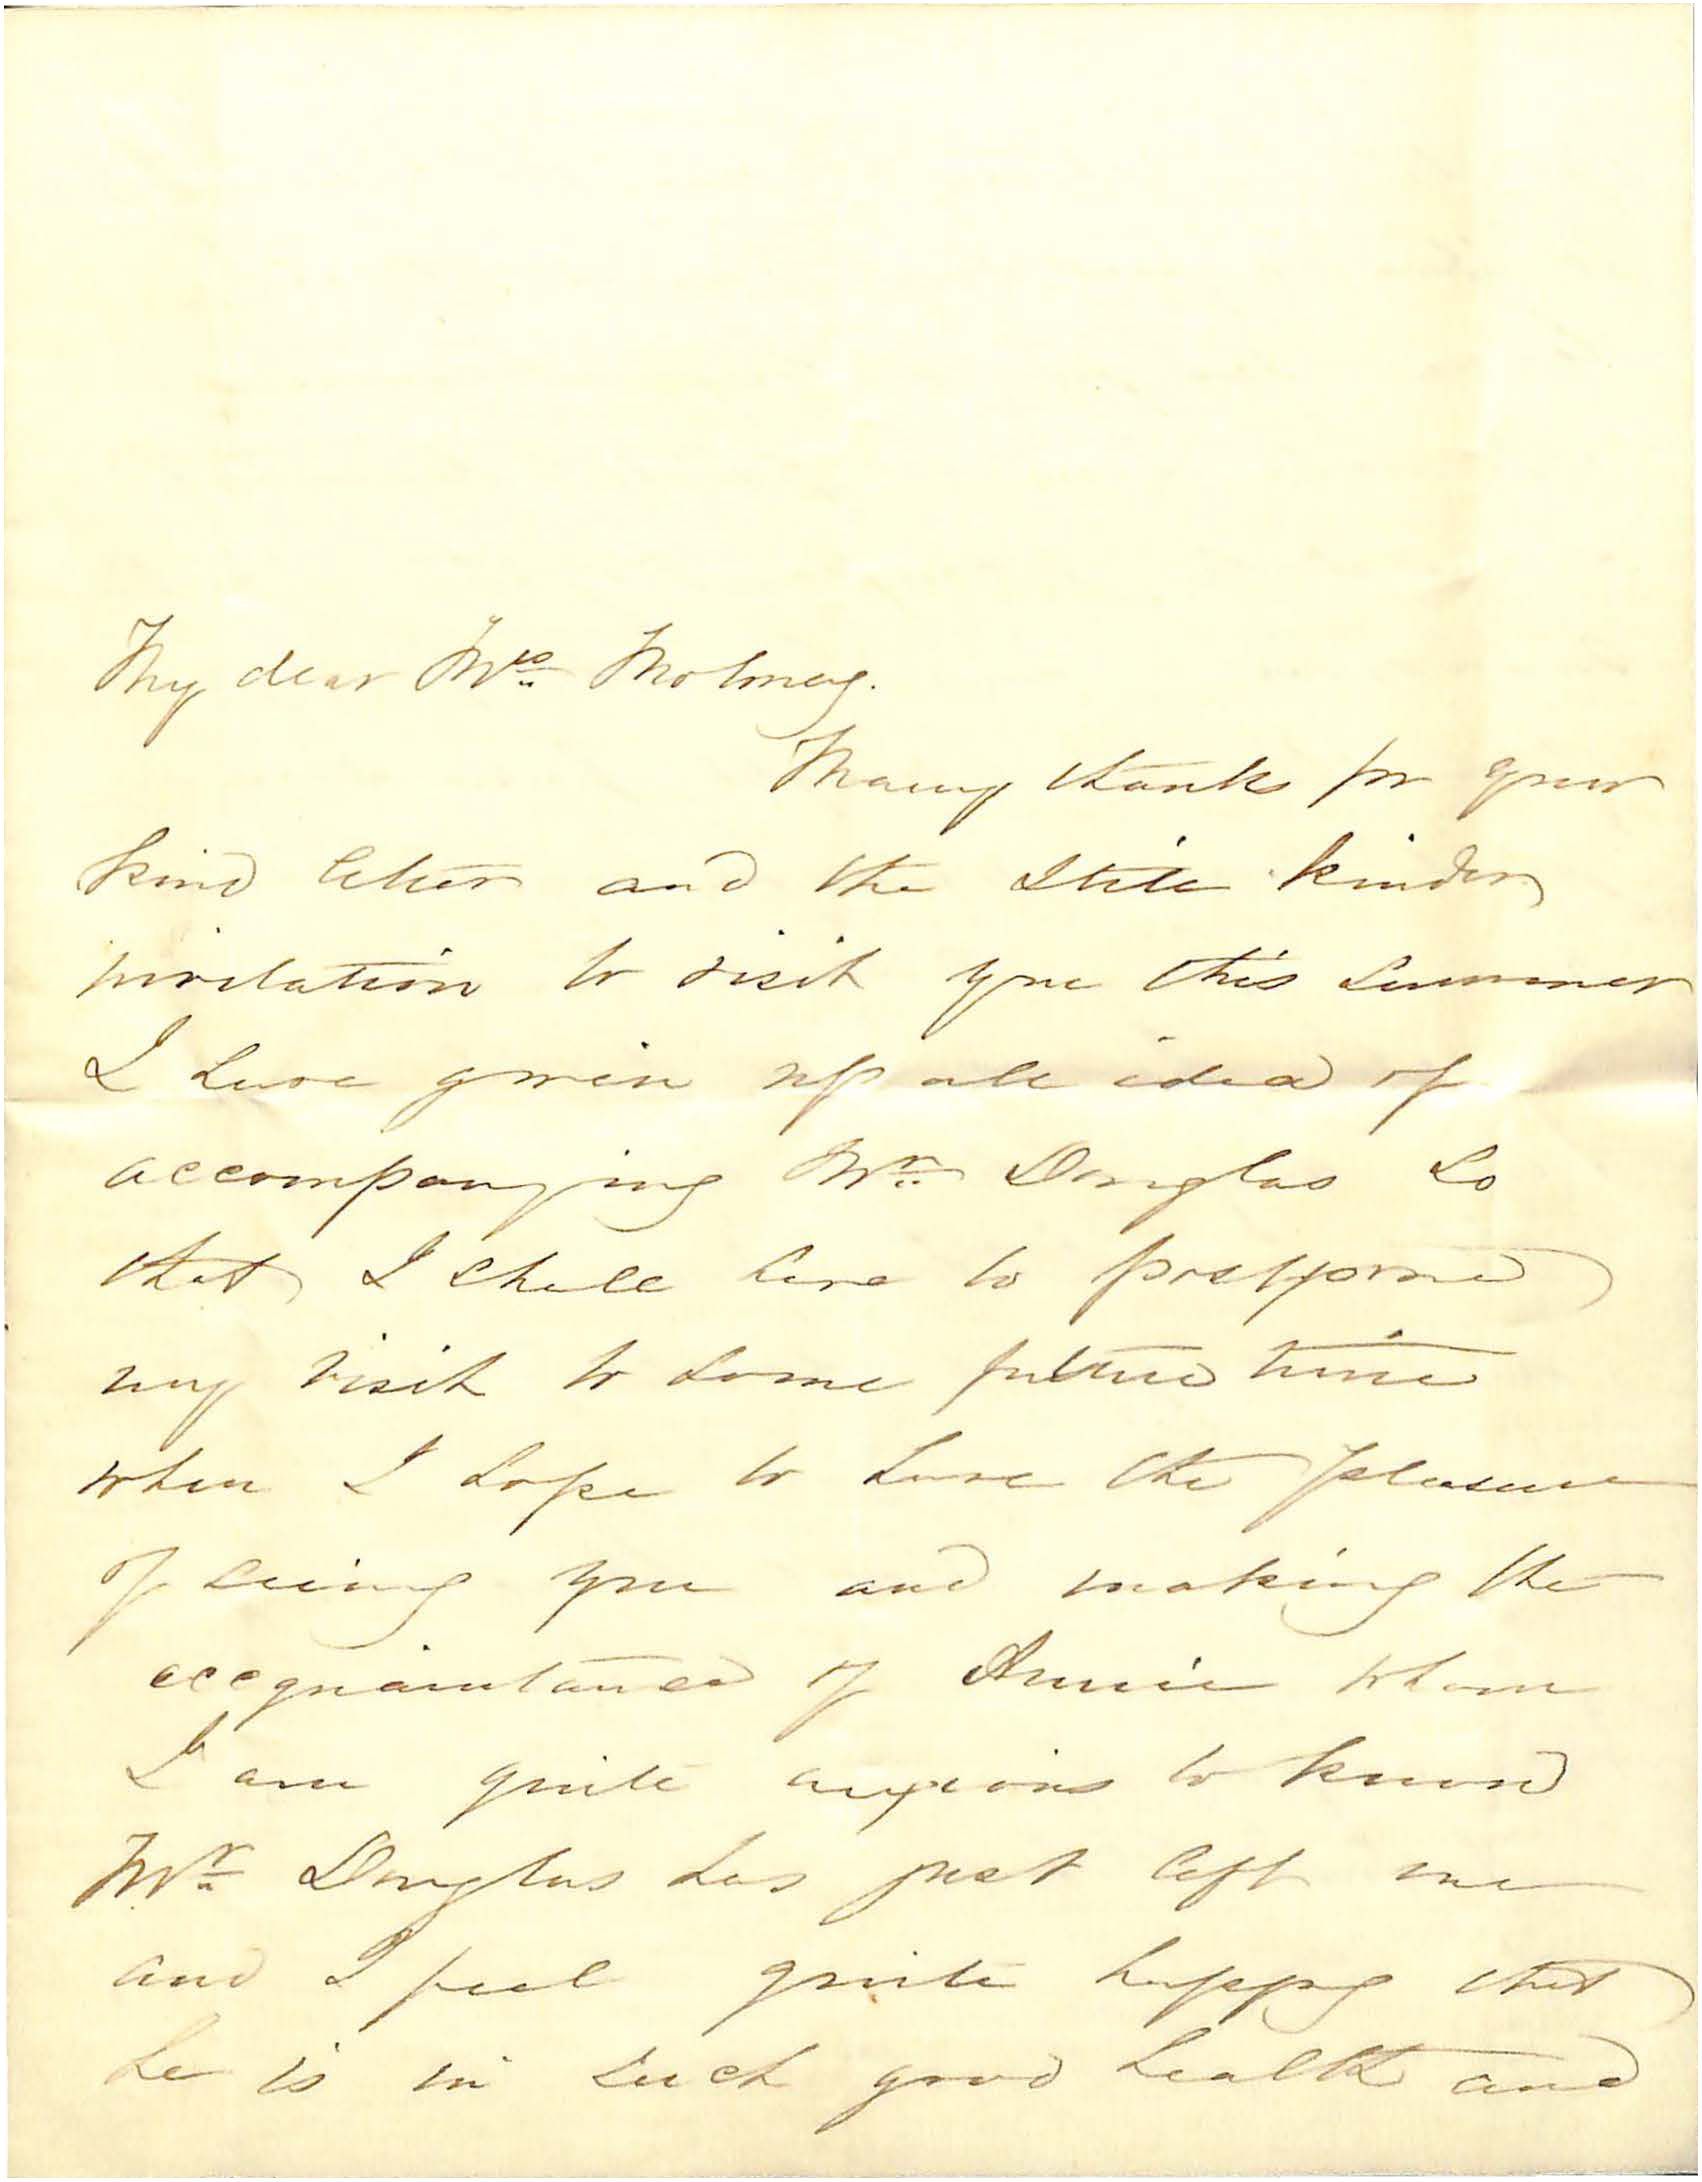 My dear Mrs Molony.
Many thanks for your
kind letter and the still kinder
invitation to visit you this summer
I have given up all idea of
accompanying Mr Douglas so
that I shall have to postpone
my visit to some future time
when I hope to have the pleasure
of seeing you and making the
acquaintance of Annie whom
I am quite anxious to know
Mr Douglas has just left me
and I feel quite happy that
he is in such good health and